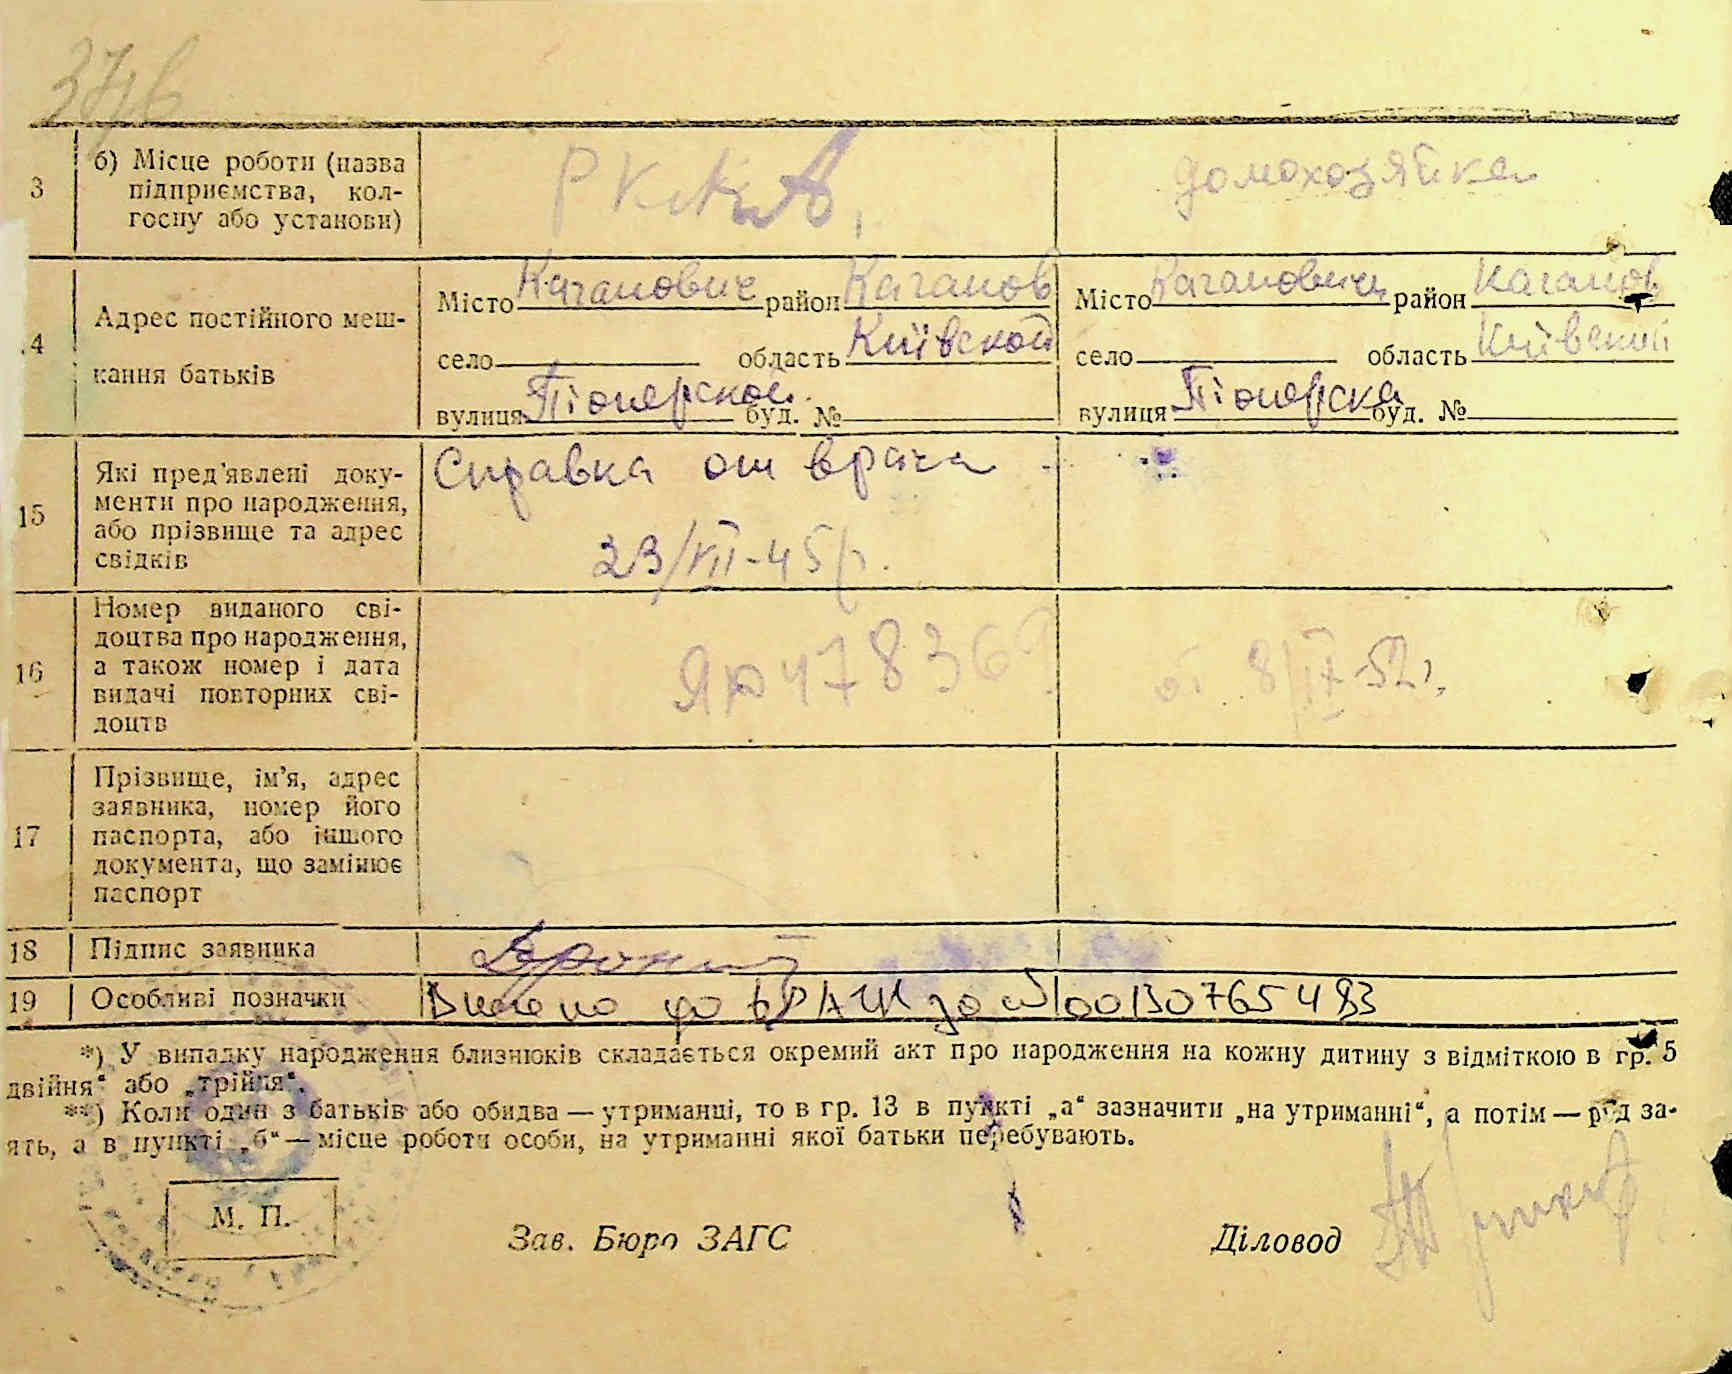 3
б) Місце роботи (назва
підприємства, кол-
госпу або установи)
домохозяйка
4
Адрес постійного меш-
кання батьків
Місто Каганович район Каганов
село область Київской
вулиця Піонерской буд. №
Місто Кагановича район Каганов
село область Київской
вулиця Піонерска буд. №
15
Які пред'явлені доку-
менти про народження,
або прізвище та адрес
свідків
Справка от врача
23/VII-45 р.
16
Номер виданого сві-
доцтва про народження,
а також номер і дата
видачі повторних сві-
доцтв
от 8/IX-52 г.
17
Прізвище, ім'я, адрес
заявника, номер його
паспорта, або іншого
документа, що замінює
паспорт
18
Підпис заявника
19
Особливі позначки
Внесено до ДРАЦС за № 00130765483
*) У випадку народження близнюків складається окремий акт про народження на кожну дитину з відміткою в гр. 5
двійня“ або „трійня“.
**) Коли один з батьків або обидва — утриманці, то в гр. 13 в пункті „а“ зазначити „на утриманні“, а потім — рід за-
ять, а в пункті „б“ — місце роботи особи, на утриманні якої батьки перебувають.
М. П.
Зав. Бюро ЗАГС
Діловод